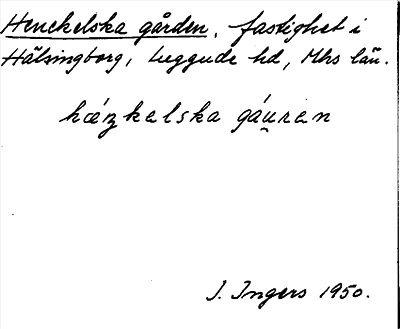 Henckelska gården, fastighet i
Hälsingborg, Luggude hd, Mhs län.
hæŋkelska gáu̯ren
J. Ingers 1950.